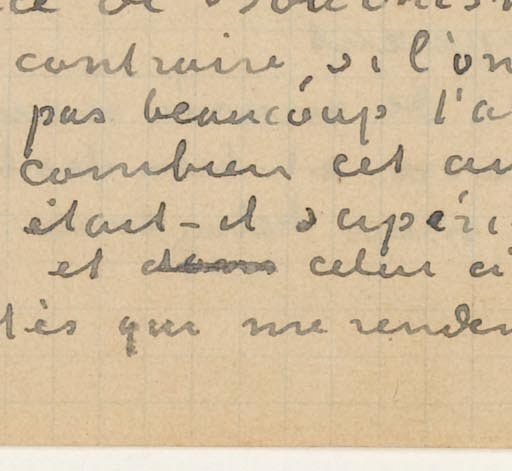 contraire, si l'on
pas beaucoup l'a
combien cet au
était-il supéri
et dans celui ci
tés qui me renden